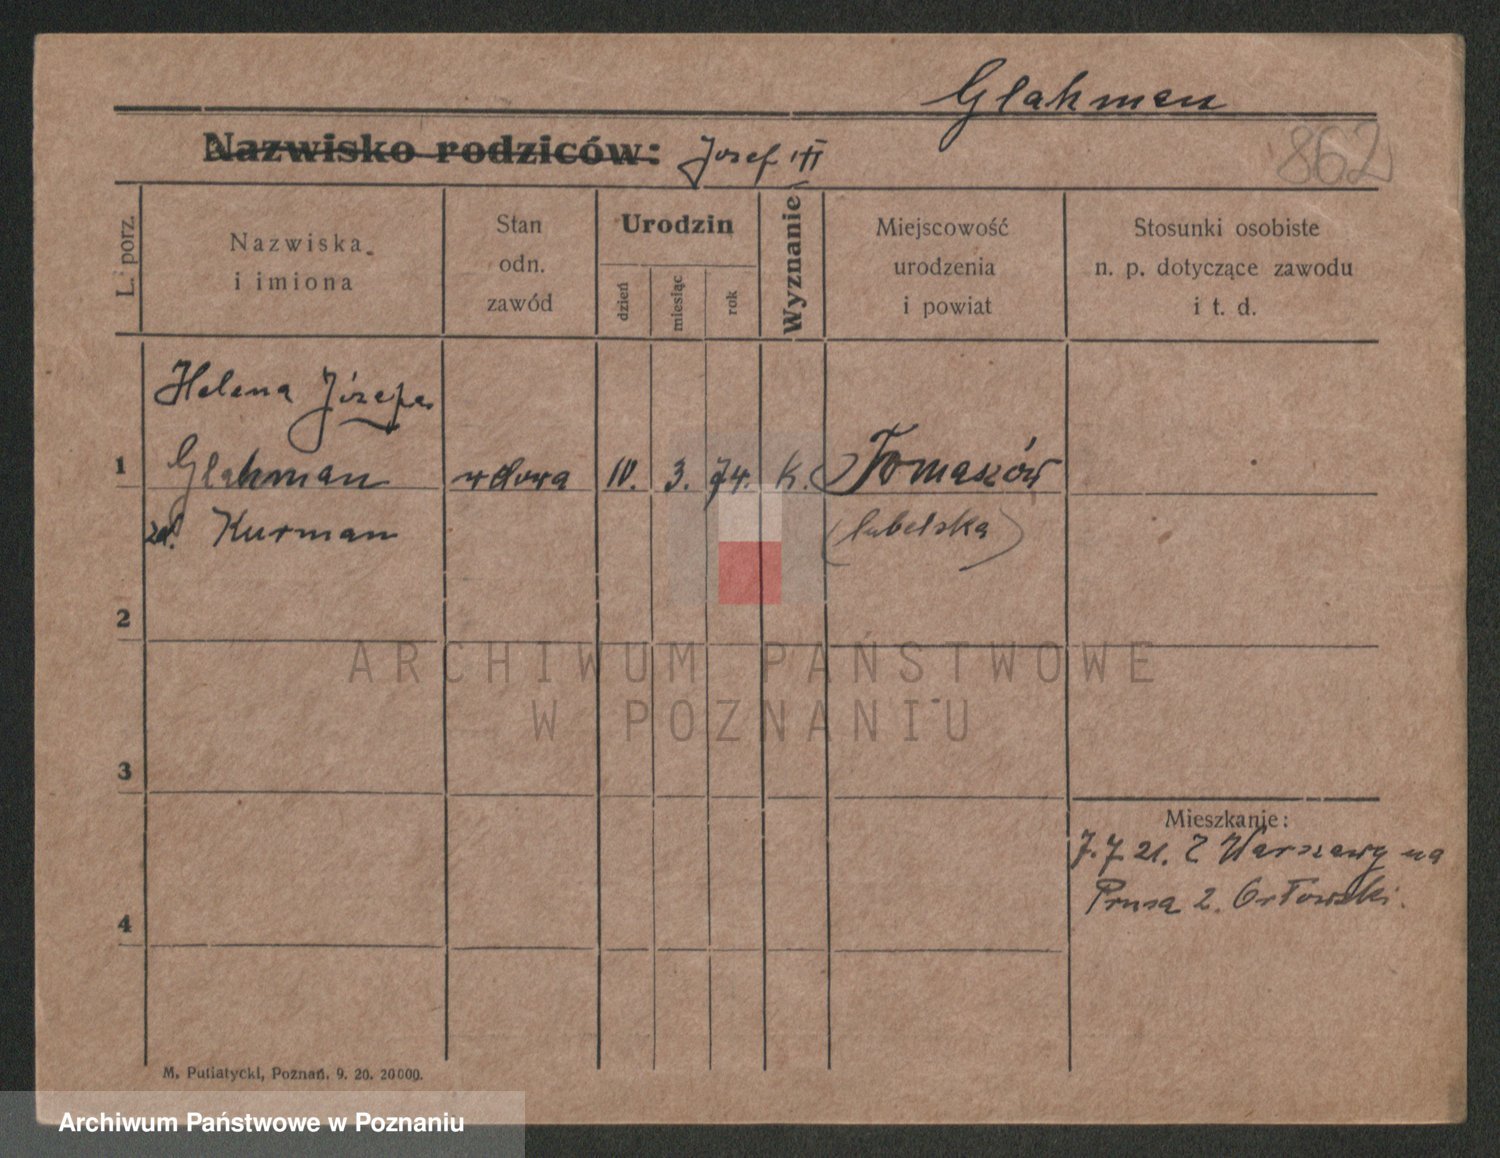 Glahman
Nazwisko rodziców: Jozef
862
L. porz.
Nazwiska
i imiona
Stan
odn.
zawód
Urodzin
dzień
miesiąc
rok
Wyznanie
Miejscowość
urodzenia
i powiat
Stosunki osobiste
n. p. dotyczące zawodu
i t. d.
Helena Józefa
1 Glahman wdowa IV. 3. 74. K. Tomaszów
zd. Kurman (lubelska)
2
3
4
Mieszkanie:
7.7 21. Z Warszawy na
Prusa 2. Orłowski.
M. Putiatycki, Poznań. 9. 20. 20000.
ARCHIWUM PAŃSTWOWE
W POZNANIU
Archiwum Państwowe w Poznaniu